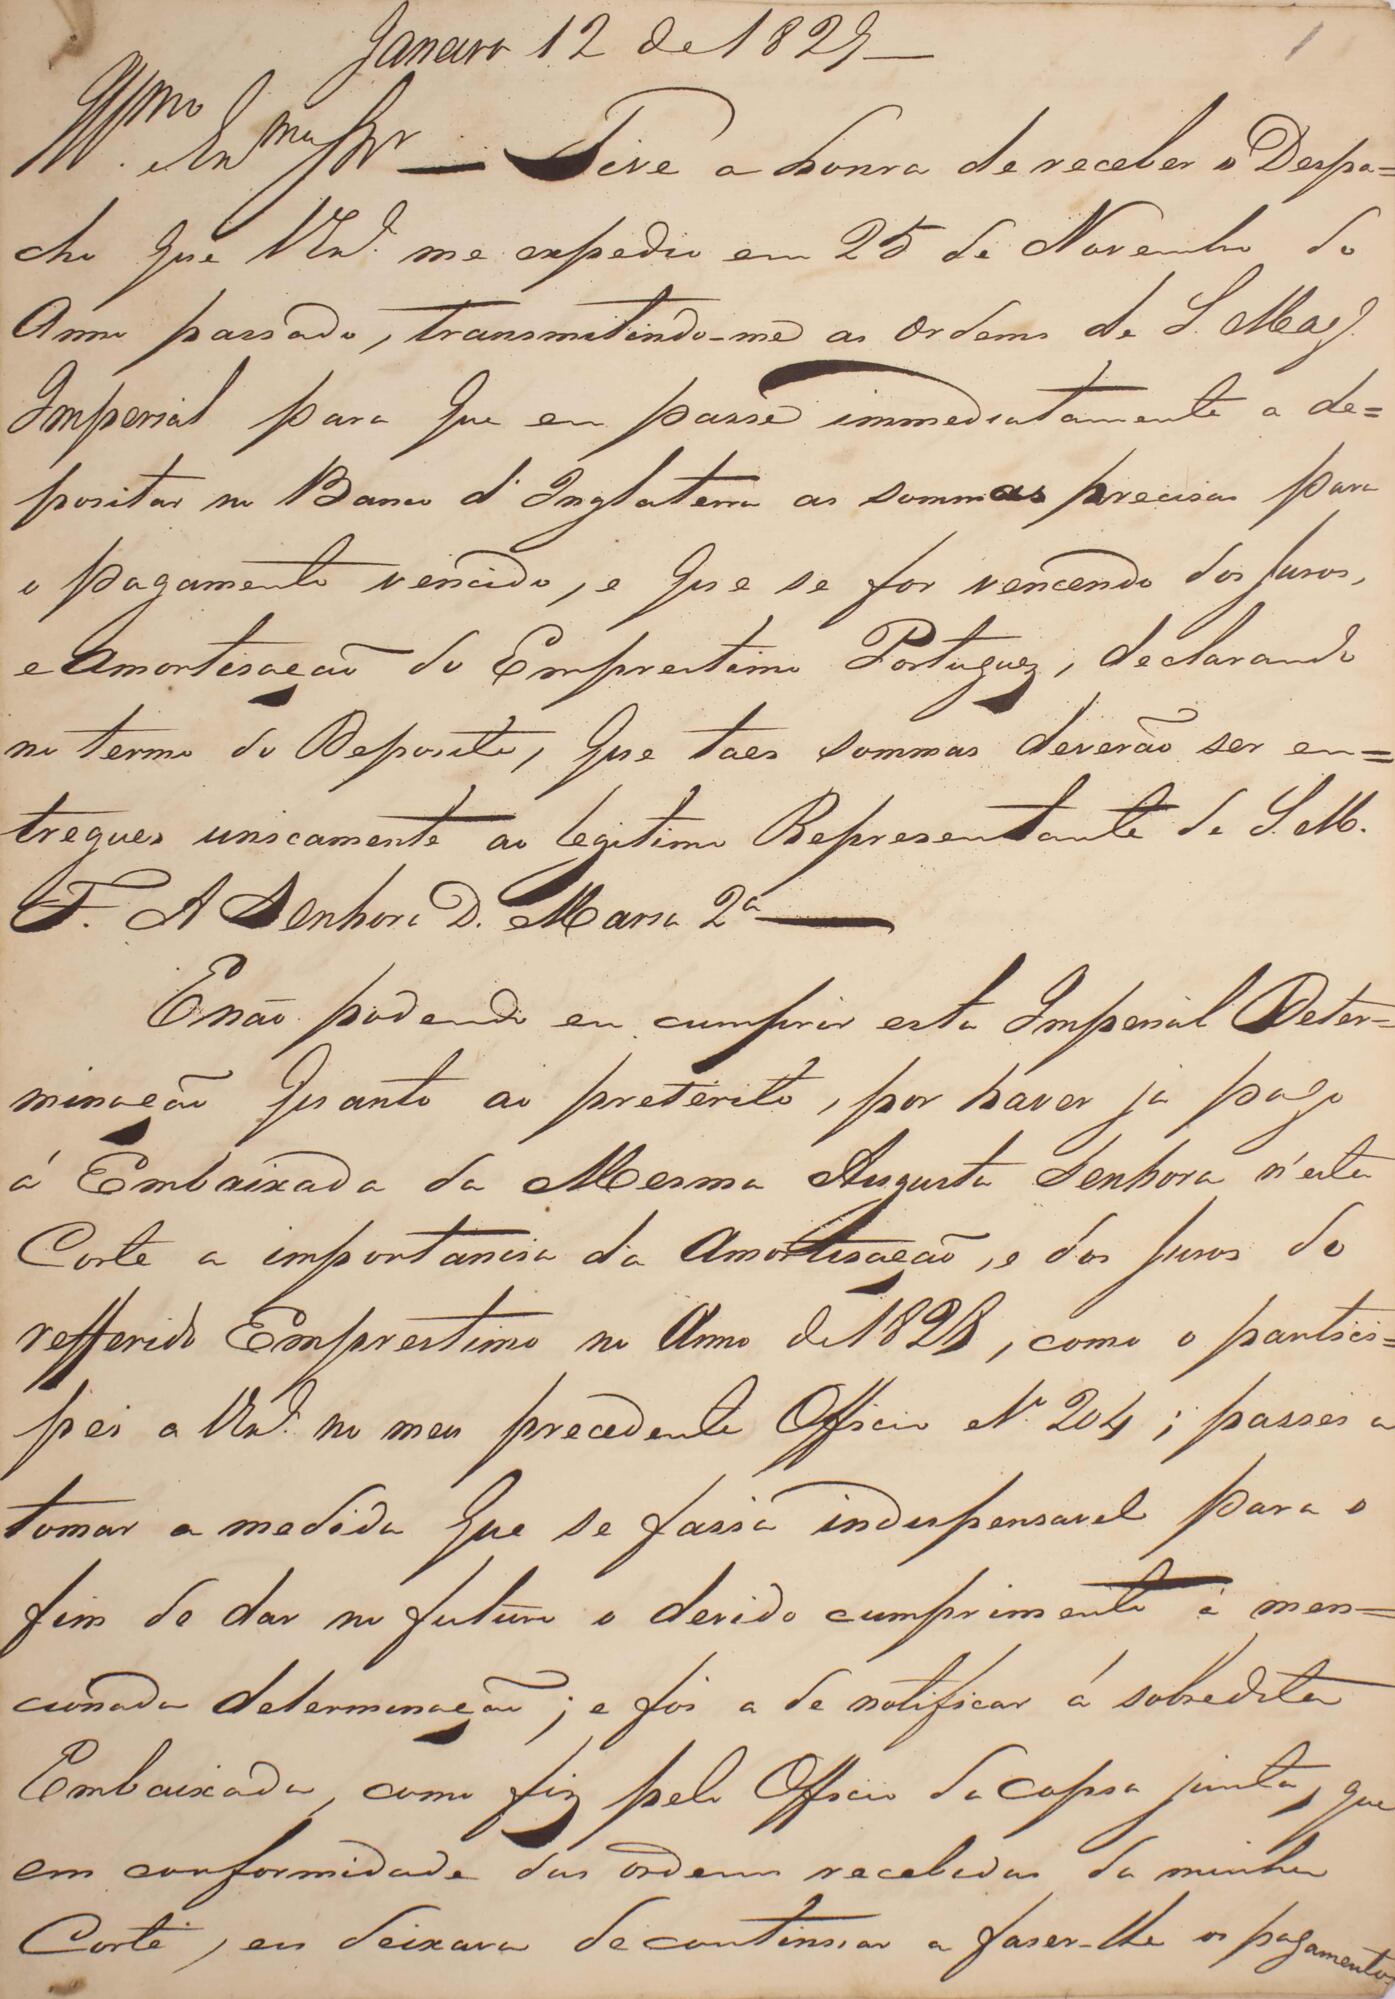 Janeiro 12 de 1829
1
Illmo. Exmo Snr — Tive a honra de receber o Despa=
cho que V. Exa. me expedio em 25 de Novembro do
Anno passado, transmitindo-me as Ordens de S. Mag.
Imperial para que eu passe immediatamente a de=
positar no Banco d'Inglaterra as sommas precisas para
o pagamento vencido, e que se for vencendo dos juros,
e Amortisação do Emprestimo Portuguez, declarando
no termo do Deposito, que taes sommas deverão ser en=
tregues unicamente ao legitimo Representante de S. M.
F. A Senhora D. Maria 2a —
E não podendo eu cumprir esta Imperial Deter=
minação quanto ao preterito, por haver ja pago
á Embaixada da Mesma Augusta Senhora n'esta
Corte a importancia da Amortisação, e dos juros do
refferido Emprestimo no Anno de 1828, como o partici=
pei a V. Exa. no meu precedente Officio No. 204; passei a
tomar a medida que se fasia indispensavel para o
fim de dar no futuro o devido cumprimento á men=
cionada determinação; e foi a de notificar á sobredita
Embaixada, como fiz pelo Officio da copia junta, que
em conformidade das ordens recebidas da minha
Corte, eu deixava de continuar a faser-lhe os pagamentos